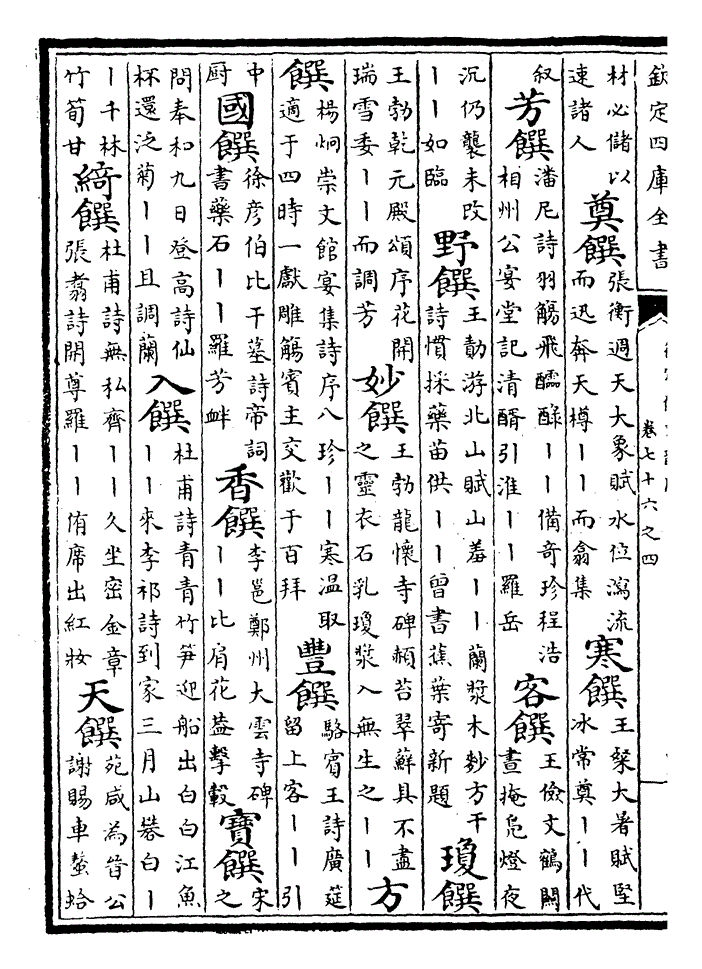 欽定四庫全書
卷七十六之四
材必儲以
速諸人
奠饌
張衡週天大象賦水位瀉流
而迅奔天樽丨丨而翕集
寒饌
王粲大暑賦堅
冰常奠丨丨代
叙
芳饌
潘尼詩羽觴飛醽醁丨丨備奇珍程浩
相州公宴堂記清醑引淮丨丨羅岳
客饌
王儉文鶴闕
晝掩鳧燈夜
沉仍襲未改
丨丨如臨
野饌
王勣游北山賦山羞丨丨蘭漿木麨方干
詩慣採藥苗供丨丨曾書蕉葉寄新題
瓊饌
王勃乾元殿頌序花開
瑞雪委丨丨而調芳
妙饌
王勃龍懷寺碑頳苔翠蘚具不盡
之靈衣石乳瓊漿入無生之丨丨
方
饌
楊炯崇文館宴集詩序八珍丨丨寒温取
適于四時一獻雕觴賓主交歡于百拜
豐饌
駱賓王詩廣筵
留上客丨丨引
中
厨
國饌
徐彦伯比干墓詩帝詞
書藥石丨丨羅芳衅
香饌
李邕鄭州大雲寺碑
丨丨比肩花葢擊轂
寶饌
宋
之
問奉和九日登高詩仙
杯還泛菊丨丨且調蘭
入饌
杜甫詩青青竹笋迎船出白白江魚
丨丨來李祁詩到家三月山礬白丨
丨千林
竹筍甘
綺饌
杜甫詩無私齊丨丨久坐密金章
張翥詩開尊羅丨丨侑席出紅妝
天饌
苑咸為晉公
謝賜車螯蛤